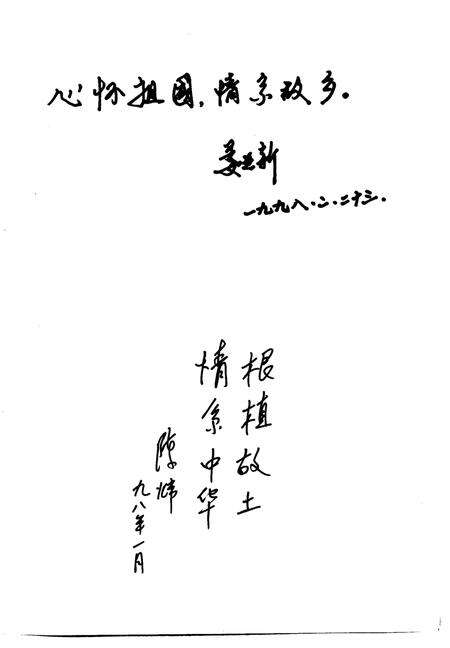 心怀祖国，情系故乡。
姜立新
一九九八.二.二十三.
根植故土
情系中华
陈炜
九八年一月